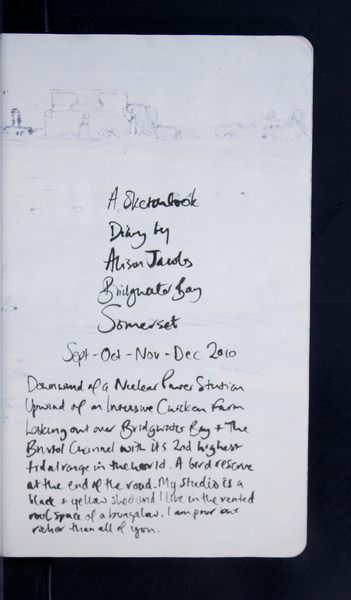 A Sketchbook
Diary by
Alison Jacobs
Bridgwater Bay
Somerset
Sept - Oct - Nov - Dec 2010
Downwind of a Nuclear Power Station
Upwind of an Intensive Chicken Farm
Looking out over Bridgwater Bay + The
Bristol Channel with its 2nd highest
tidal range in the world. A bird reserve
at the end of the road. My studio is a
black + yellow shed and I live in the rented
roof space of a bungalow. I am poor but
richer than all of you.